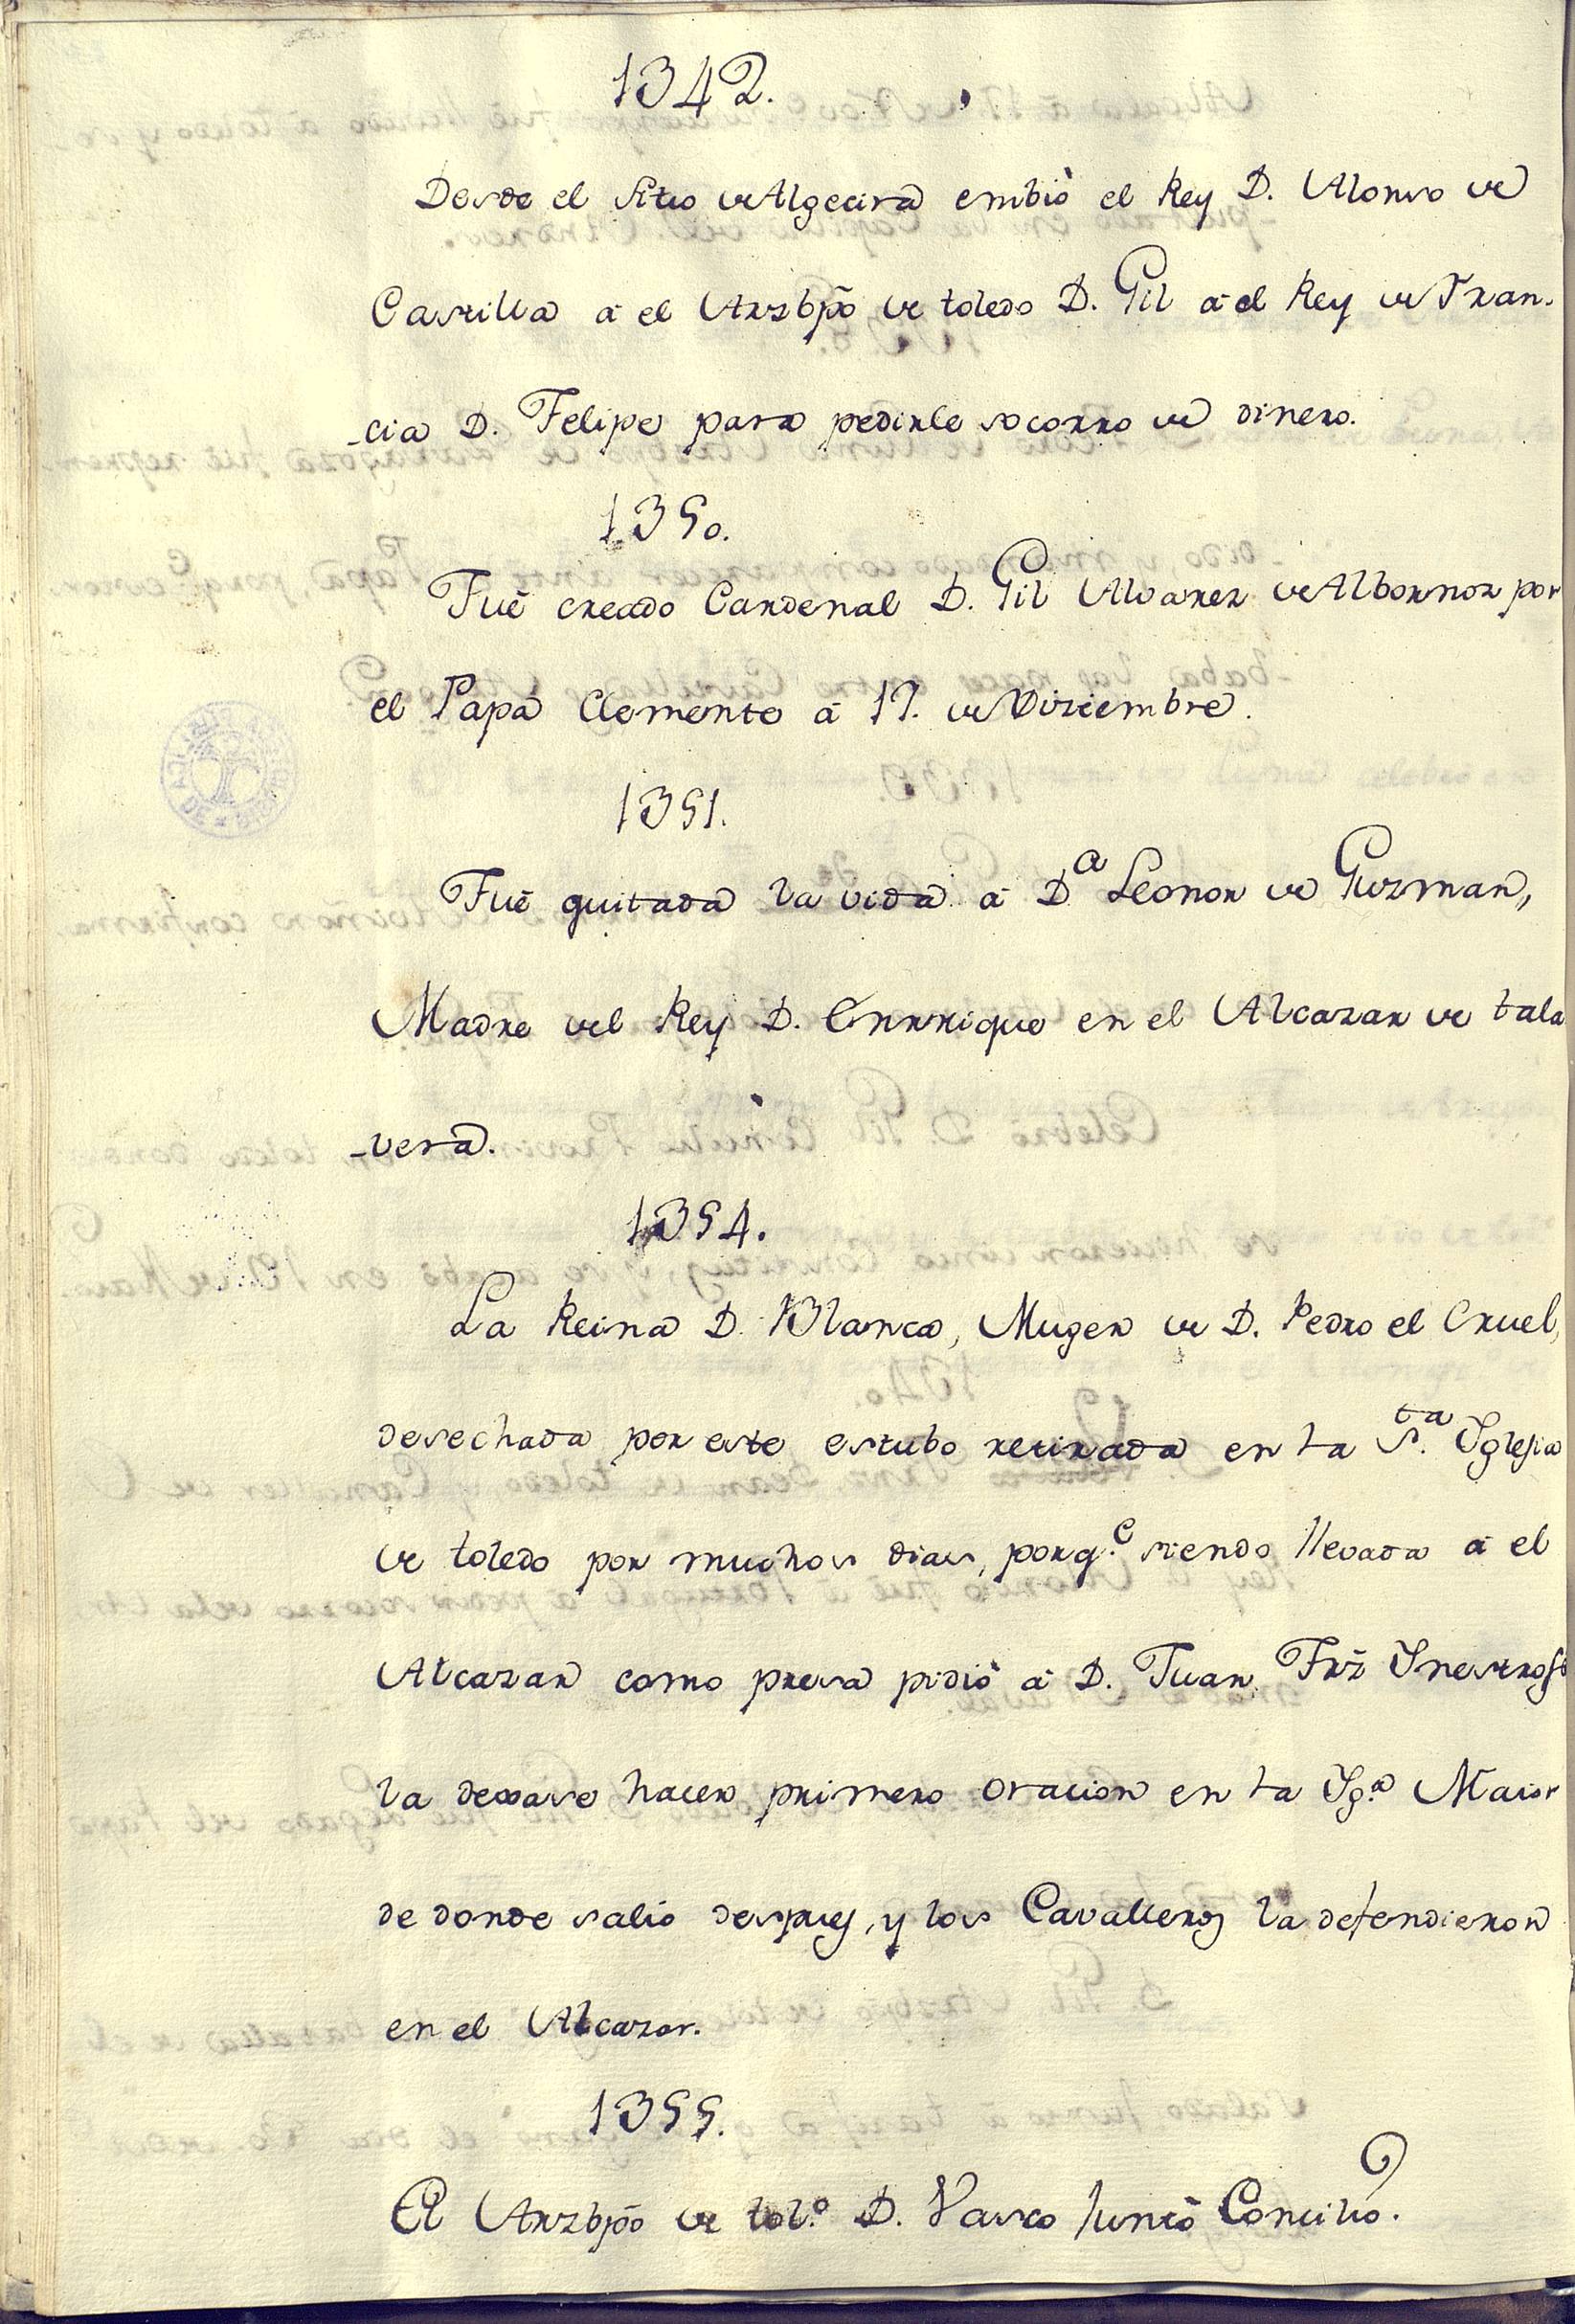 1342.
Desde el sitio de Algecira embiò el Rey D. Alonso de
Castilla á el Arzbpõ de toledo D. Gil á el Rey de Fran-
-cia D. Felipe para pedirle socorro de dinero.
1350.
Fué creado Cardenal D. Gil Alvarez de Albornoz por
el Papa Clemente á 17. de Diziembre.
1351.
Fué quitada la vida á D.ª Leonor de Guzman,
Madre del Rey D. Enrrique en el Alcazar de tala
-vera.
1354.
La Reina D. Blanca, Muger de D. Pedro el Cruel,
desechada por este estubo retirada en la S.ta Iglesia
de toledo por muchos dias, porq.e siendo llevada á el
Alcazar como presa pidiò á D. Juan Frz̃ Inestrosa
la dexase hacer primero oracion en la Ig.ª Maior
de donde saliò despues, y los Cavalleros la defendieron
en el Alcazar.
1355.
El Arzbpõ de tol.º D. Vasco juntò Concilio.